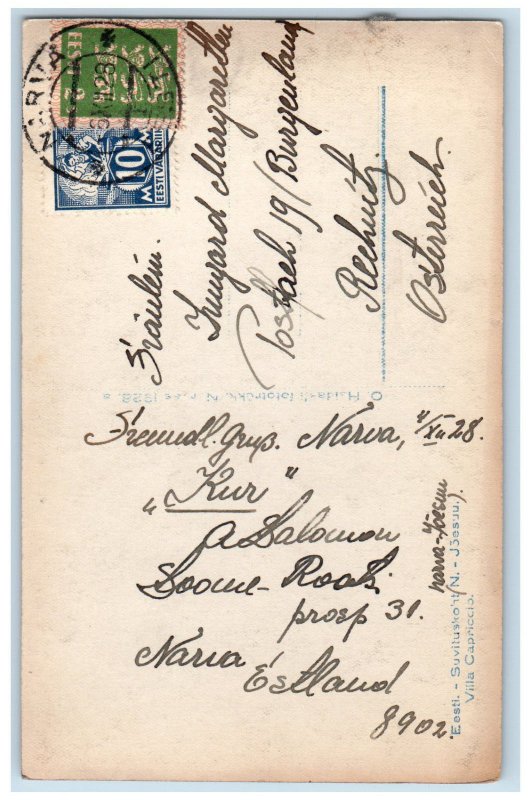 NARVA
EESTI
6.XII.28
EESTI
2
10
M M
EESTI VABARIIK
Fräulein
Irmgard Margarethen
Postfach 19/Burgenland
Rechnitz.
Österreich.
Narva 1928. a.
Freundl. Gruß. Narva, 4/XII 28.
„Kur“
A Salomon
Soome-Rooti
prosp 31.
Narva
Estland
8902.
narva-Jõesuu
Eesti. - Suvituskoht N. - Jõesuu.
Villa Capriccio.